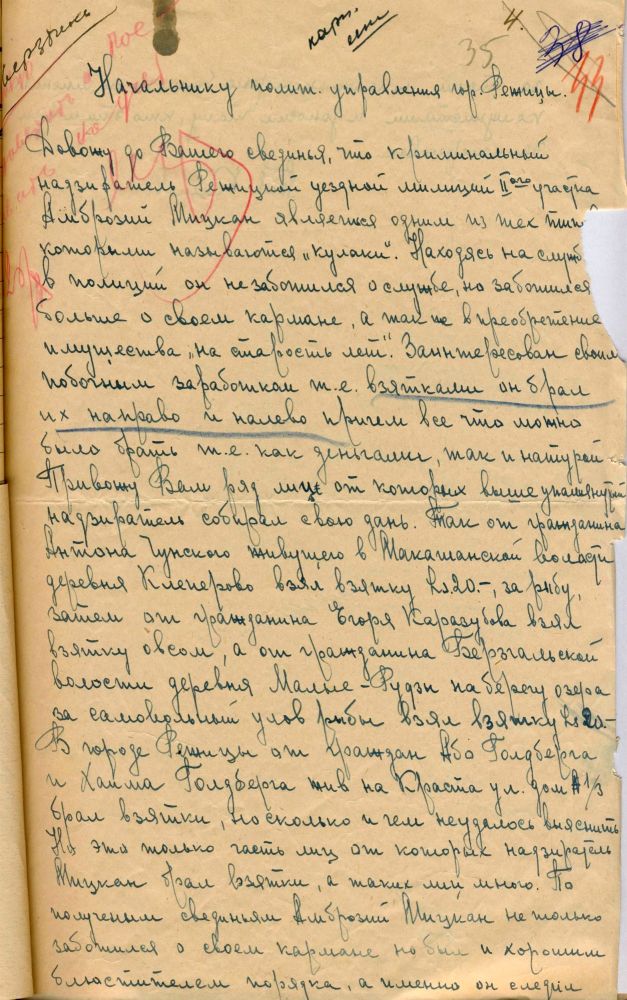 4.
35
38
33
Начальнику полит. управления гор. Режицы.
Довожу до Вашего сведенья, что криминальный
надзиратель Режицкой уездной милиций II ого участка
Амброзий Мицкан является одним из тех
которыми называются „кулаки“. Находясь на служб
в полиций он незаботился о службе, но заботился
больше о своем кармане, а так же в преобретение
имущества „на старость лет“. Заинтересован своим
побочным заработком т.е. взятками он брал
их направо и налево причем все что можно
было брать т.е. как деньгами, так и натурой
Привожу Вам ряд лиц от которых выше упамянутый
надзиратель собирал свою дань. Так от гражданина
Антона Чунского живущего в Макашанской волости
деревня Клеперово взял взятку Ls 20.-, за рыбу,
затем от гражданина Егоря Каразубова взял
взятку овсом, а от гражданина Берзгальской
волости деревня Малые-Рудзи на берегу озера
за самовольный улов рыбы взял взятку Ls 20.-
В городе Режицы от граждан Або Голдберга
и Хаима Голдберга жив на Краста ул. дом № 1/3
брал взятки, но сколько и чем неудалось выяснить
Но это только часть лиц от которых надзиратель
Мицкан брал взятки, а таких лиц много. По
полученым сведеньям Амброзий Мицкан не только
заботился о своем кармане но был и хорошим
блюстителем порядка, а именно он следил